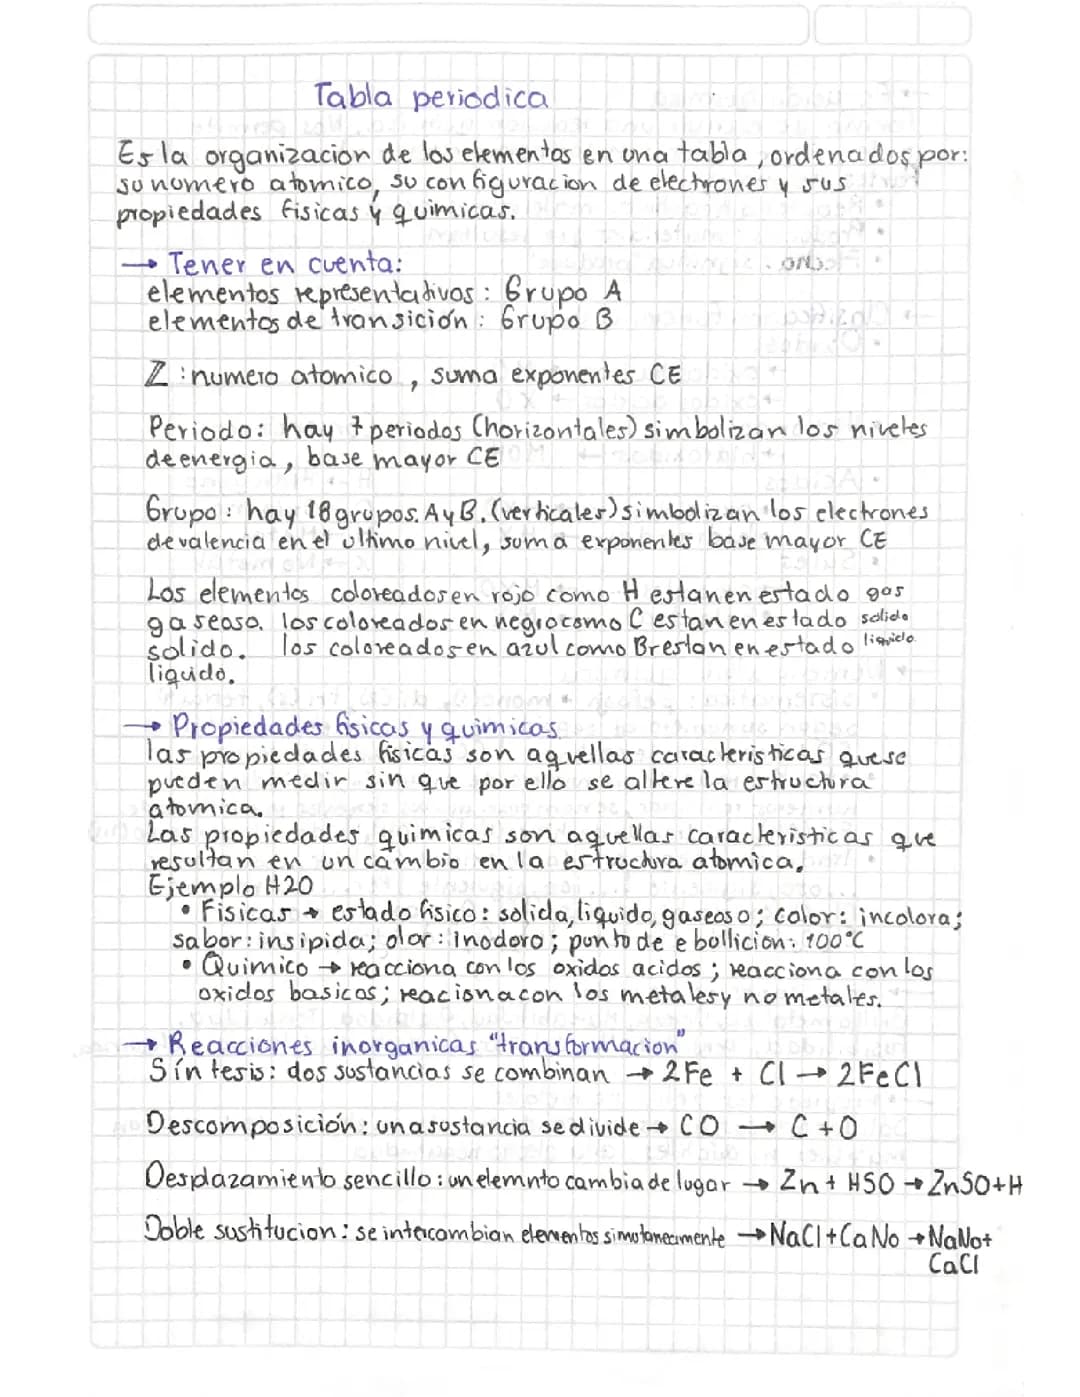 Tabla periodica
Es la organizacion de los elementos en una tabla, ordenados por:
su numero atomico, su configuracion de electrones y sus
propiedades fisicas y quimicas.
→ Tener en cuenta:
elementos representativos: Grupo A
elementos de transición: Grupo B
Z: numero atomico, suma exponentes CE
Periodo: hay 7 periodos (horizontales) simbolizan los niveles
de energia, base mayor CE
Grupo: hay 18 grupos. A y B. (verticales) simbolizan los electrones
de valencia en el ultimo nivel, suma exponentes base mayor CE
Los elementos coloreados en rojo como H estan en estado gas
gaseoso. los coloreados en negro como C estan en estado solido
solido. los coloreados en azul como Br estan en estado liquido
liquido.
→ Propiedades fisicas y quimicas
las propiedades fisicas son aquellas caracteristicas que se
pueden medir sin que por ello se altere la estructura
atomica.
Las propiedades quimicas son aquellas caracteristicas que
resultan en un cambio en la estructura atomica.
Ejemplo H2O
• Fisicas → estado fisico: solida, liquido, gaseoso; color: incolora;
sabor: insipida; olor: inodoro; punto de ebollicion: 100°C
• Quimico → reacciona con los oxidos acidos; reacciona con los
oxidos basicos; reaciona con los metales y no metales.
→ Reacciones inorganicas "transformacion"
Síntesis: dos sustancias se combinan → 2Fe + Cl → 2FeCl
Descomposición: una sustancia se divide → CO → C + O
Desplazamiento sencillo: un elemnto cambia de lugar → Zn + HSO → ZnSO + H
Doble sustitucion: se intercambian elementos simutaneamente → NaCl + CaNo → NaNo +
CaCl